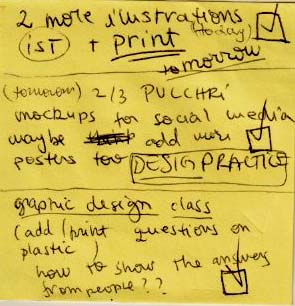 2 more illustrations
(today)
IST + print
tomorrow
(tomorrow) 2/3 PULCHRI
mockups for social media
maybe add more
posters too DESIGN PRACTICE
graphic design class
(add/print questions on
plastic)
how to show the answers
from people??